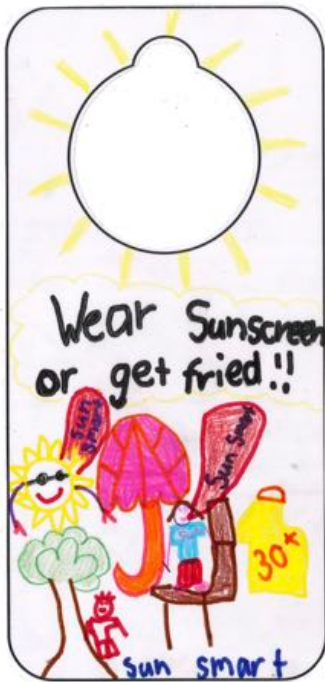 Wear Sunscreen
or get fried!!
sun
smart
Sun Smart
30+
sun smart